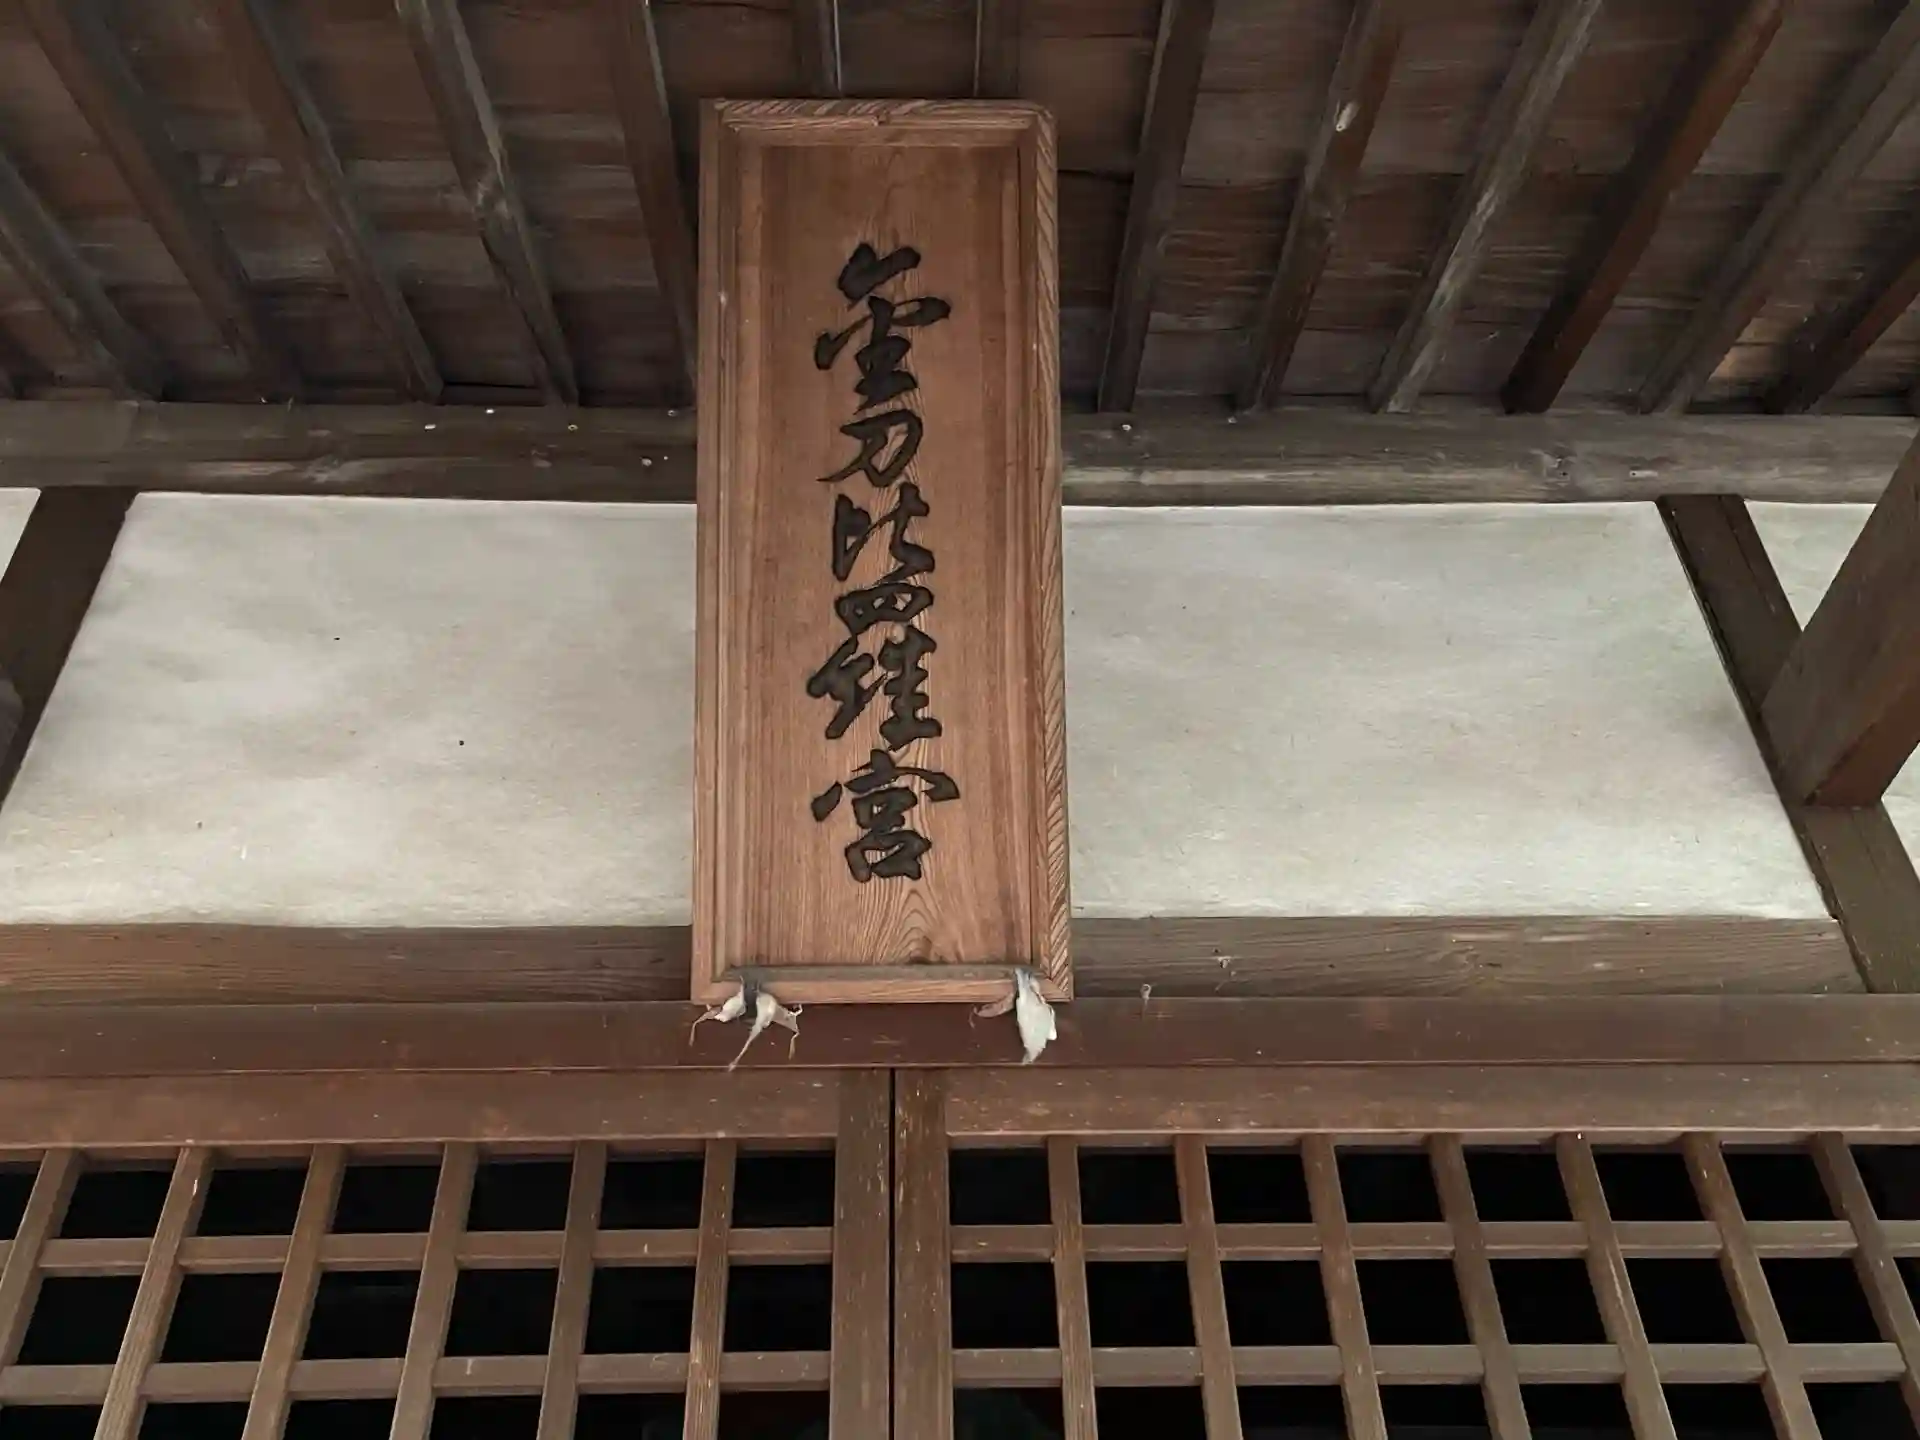 金刀比羅宮